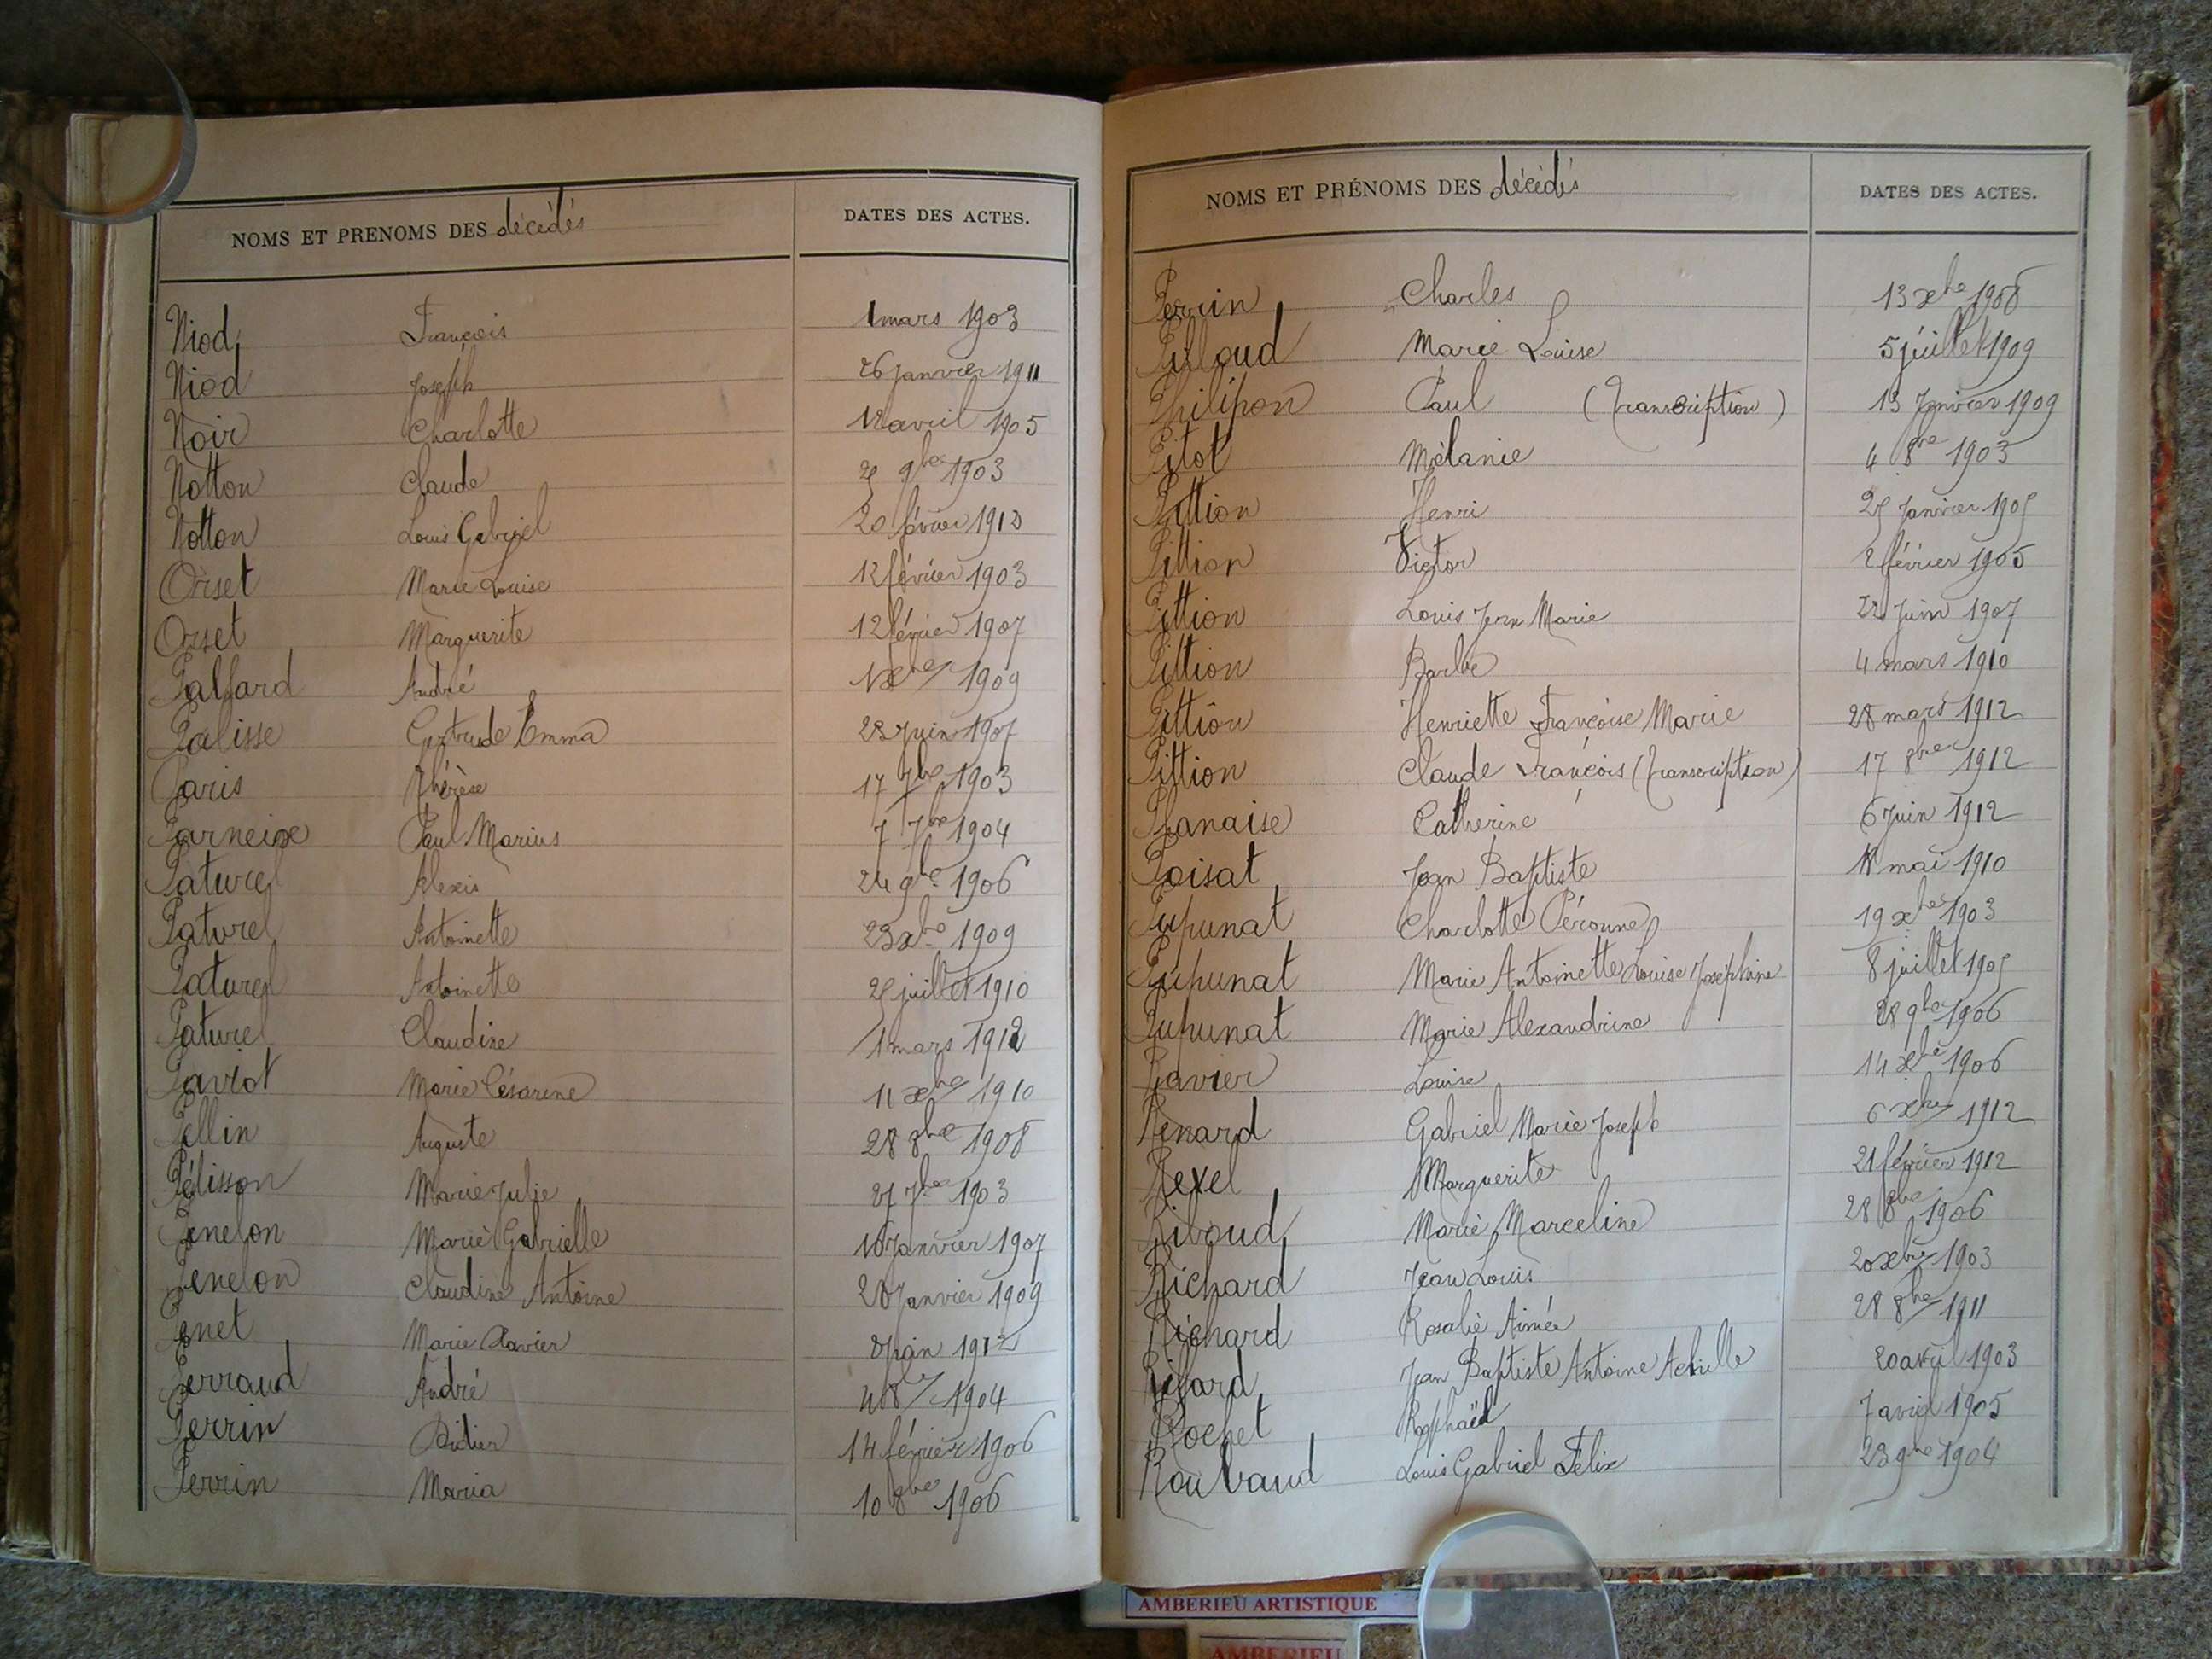 NOMS ET PRENOMS DES décédés DATES DES ACTES.
Niod François 1 mars 1903
Niod Joseph 26 janvier 1911
Noir Charlotte 12 avril 1905
Notton Claude 9bre 1903
Notton Louis Gabriel 20 février 1912
Orset Marie Louise 12 février 1903
Orset Marguerite 12 février 1907
Palfard André 1909
Palisse Gertrude Emma 23 juin 1907
Paris Thérèse 17 7bre 1903
Parneix Paul Marius 7 7bre 1904
Paturel Alexis 24 9bre 1906
Paturel Antoinette 23 xbre 1909
Paturel Antoinette 25 juillet 1910
Paturel Claudine 1 mars 1912
Paviot Marie Césarine 11 xbre 1910
Pellin Auguste 28 8bre 1908
Pélisson Marie Julie 27 7bre 1903
Penelon Marie Gabrielle 16 janvier 1907
Penelon Claudine Antoine janvier 1909
Penet Marie Xavier juin 1912
Perraud André 1904
Perrin Didier 14 février 1906
Perrin Maria 10 8bre 1906
NOMS ET PRÉNOMS DES décédés DATES DES ACTES.
Perrin Charles 13 xbre 1908
Marie Louise 5 juillet 1909
Philipon Paul (Transcription) 13 Janvier 1909
Pitot Mélanie 4 8bre 1903
Pittion Henri 25 janvier 1905
Pittion Victor 2 février 1905
Pittion Louis Jean Marie 22 juin 1907
Pittion Barbe 4 mars 1910
Pittion Henriette Françoise Marie 28 mars 1912
Pittion Claude François (Transcription) 17 8bre 1912
Planaise Catherine 6 juin 1912
Poisat Jean Baptiste mai 1910
Pupunat Charlotte Péronne 19 xbre 1903
Pupunat Marie Antoinette Louise Joséphine 8 juillet 1905
Pupunat Marie Alexandrine 28 9bre 1906
Ravier Louise 14 xbre 1906
Renard Gabriel Marie Joseph 6 xbre 1912
Rexel Marguerite 21 février 1912
Riboud Marie Marceline 28 8bre 1906
Richard Jean Louis 20 xbre 1903
Richard Rosalie Aimée 28 8bre 1911
Riffard Jean Baptiste Antoine Achille 20 avril 1903
Rochet Raphaël 7 avril 1905
Roubaud Louis Gabriel Félix 23 9bre 1904
AMBERIEU ARTISTIQUE
AMBERIEU